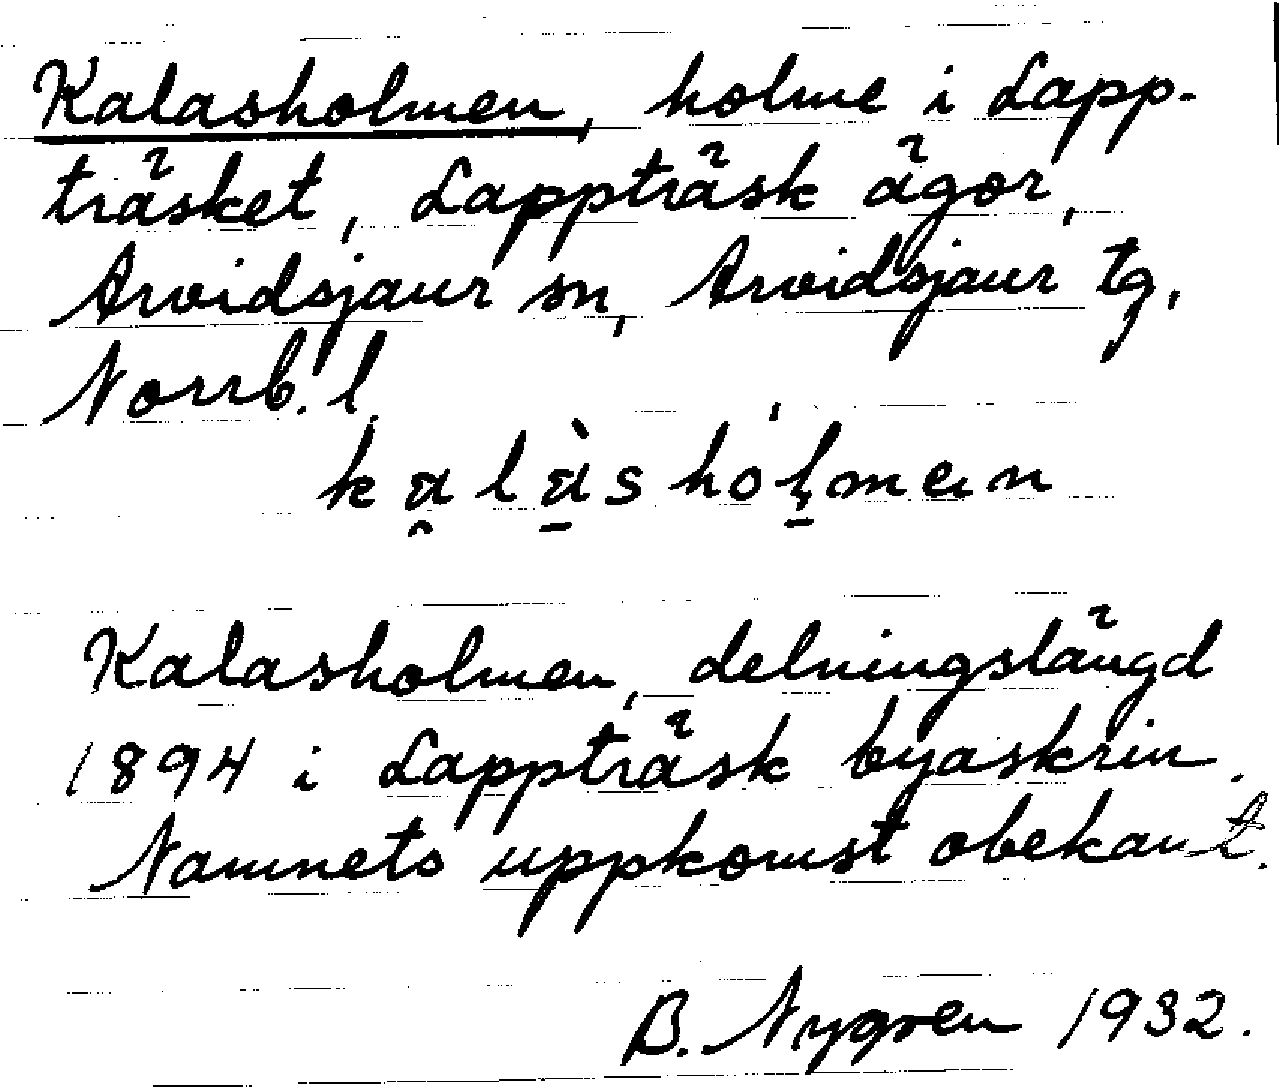 Kalasholmen, holme i Lapp-
träsket, Lappträsk ägor,
Arvidsjaur sn, Arvidsjaur tg,
Norrb. l.
kalàshólmen
Kalasholmen, delningslängd
1894 i Lappträsk byaskrin.
Namnets uppkomst obekant.
B. Nygren 1932.